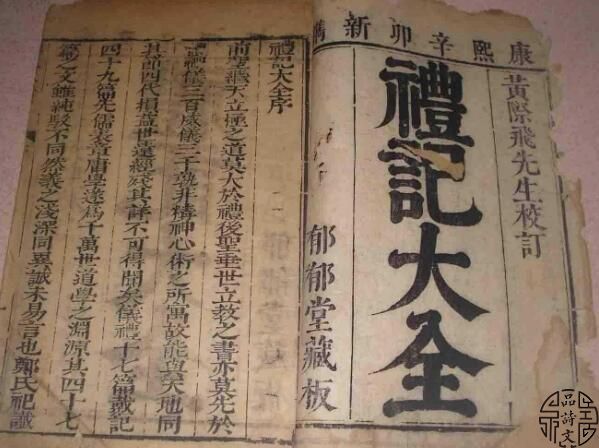 康熙辛卯新鐫
黃際飛先生校訂
禮記大全
郁郁堂藏板
禮記大全序
前聖繼天立極之道莫大於禮後聖垂世立教之書亦莫先於
禮儀三百威儀三千孰非精神心術之所寓故能與天地同
其節四代損益世遠經殘其詳不可得聞矣儀禮十七篇戴記
四十九篇先儒表章庸學遂爲千萬世道學之淵源其四十七
篇之文雖純駁不同然義之淺深同異誠未易言也鄭氏祖讖
品詩文